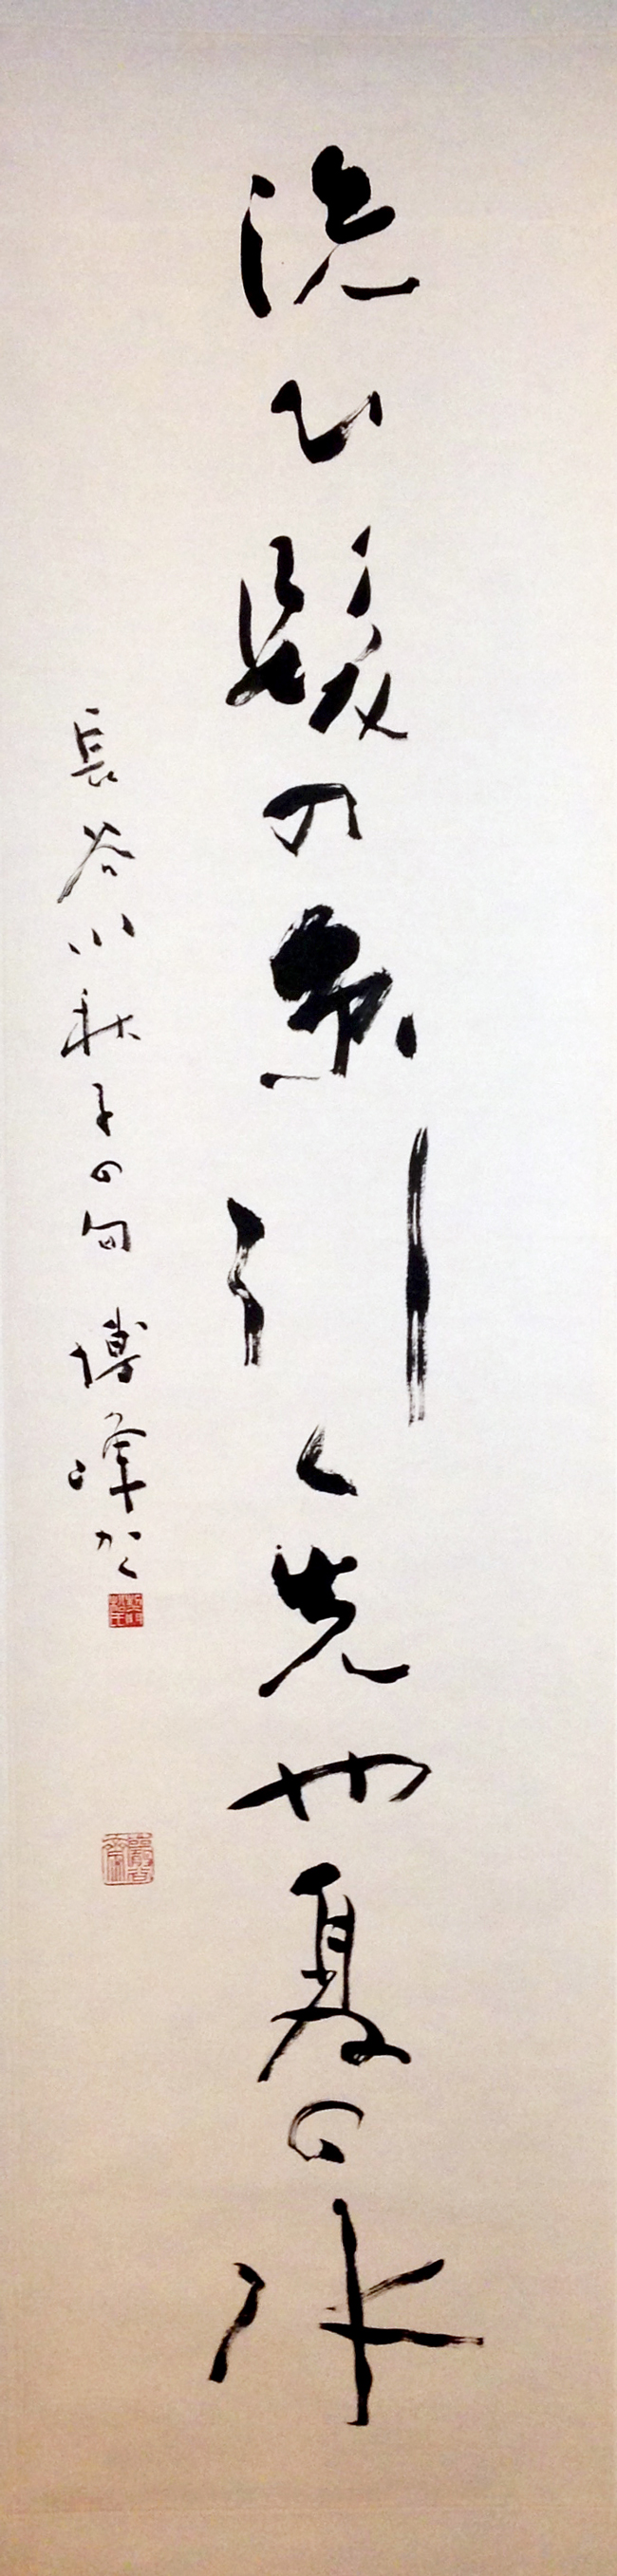 洗ひ髪の糸引く先や夏の水
長谷川秋子の句 博峰かく